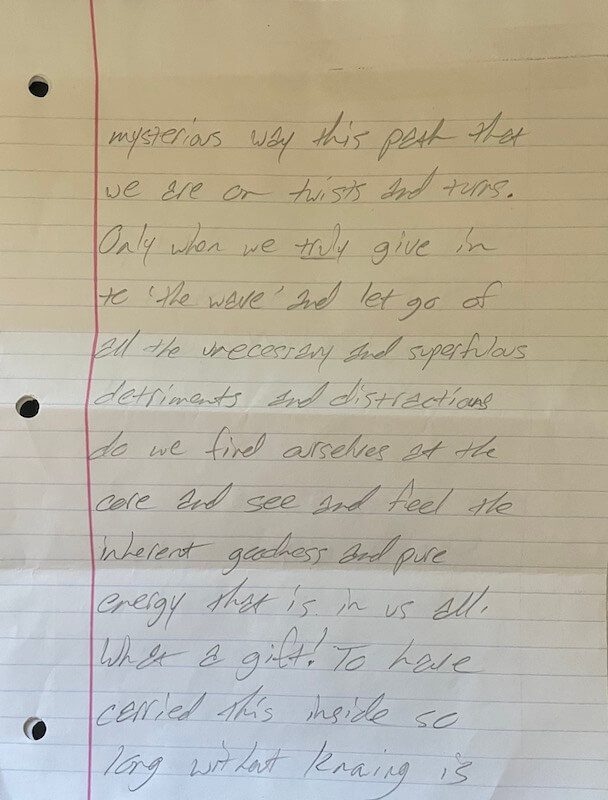 mysterious way this path that
we are on twists and turns.
Only when we truly give in
to 'the wave' and let go of
all the unecessary and superfulous
detriments and distractions
do we find ourselves at the
core and see and feel the
inherent goodness and pure
energy that is in us all.
What a gift! To have
carried this inside so
long without knowing is